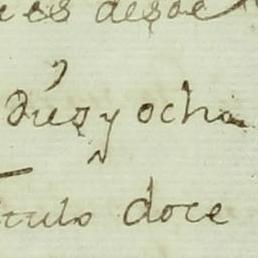 es desde
Dies y ocho
tulo doce